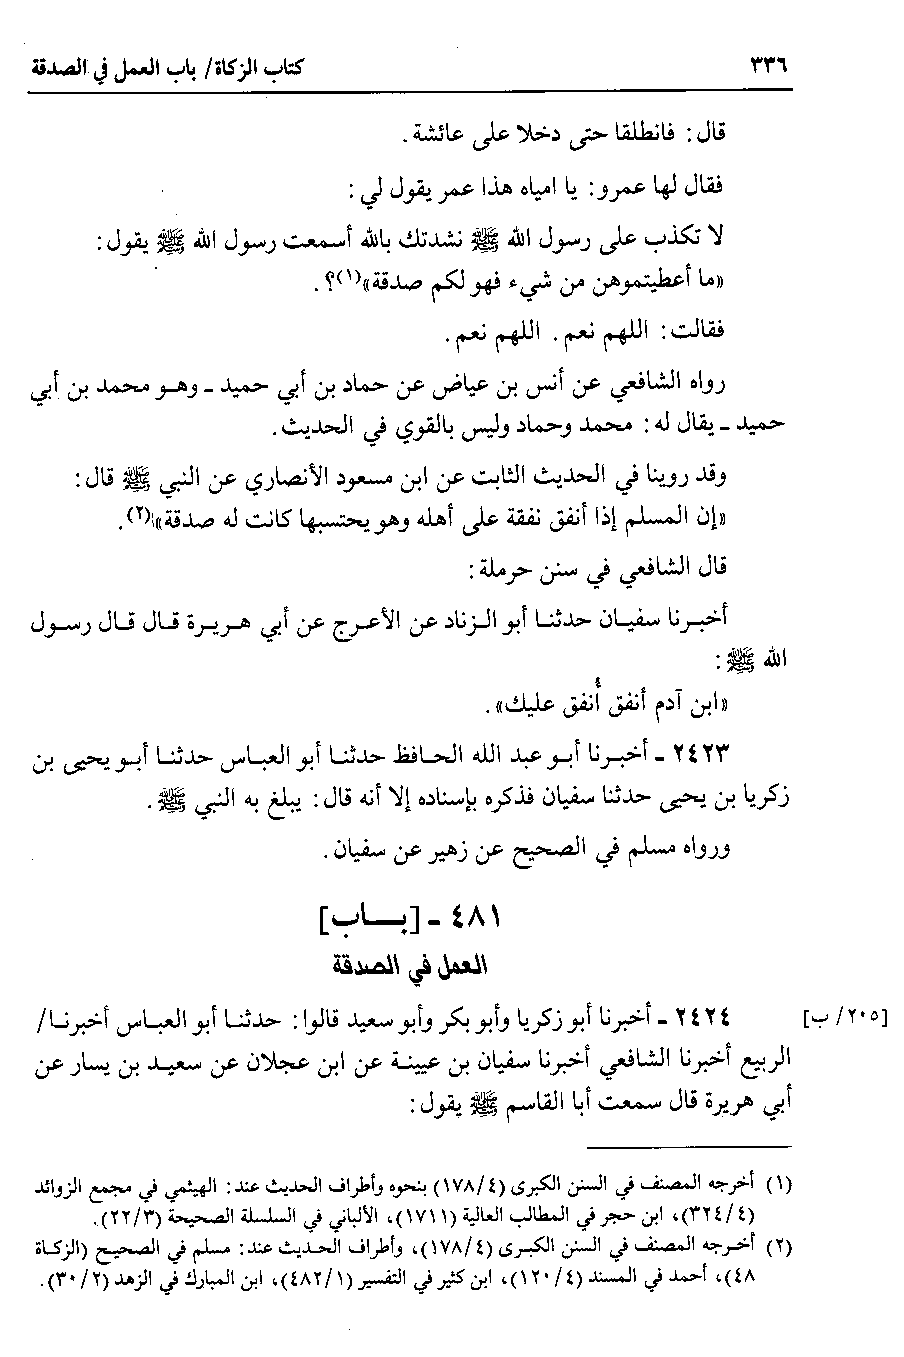 ٣٣٦ كتاب الزكاة/ باب العمل في الصدقة
قال: فانطلقا حتى دخلا على عائشة.
فقال لها عمرو: يا امياه هذا عمر يقول لي:
لا تكذب على رسول الله ﷺ نشدتك بالله أسمعت رسول الله ﷺ يقول:
«ما أعطيتموهن من شيء فهو لكم صدقة»(١)؟.
فقالت: اللهم نعم. اللهم نعم.
رواه الشافعي عن أنس بن عياض عن حماد بن أبي حميد ـ وهو محمد بن أبي
حميد ـ يقال له: محمد وحماد وليس بالقوي في الحديث.
وقد روينا في الحديث الثابت عن ابن مسعود الأنصاري عن النبي ﷺ قال:
«إن المسلم إذا أنفق نفقة على أهله وهو يحتسبها كانت له صدقة»(٢).
قال الشافعي في سنن حرملة:
أخبرنا سفيان حدثنا أبو الزناد عن الأعرج عن أبي هريرة قال قال رسول
الله ﷺ:
«ابن آدم أنفق أُنفق عليك».
٢٤٢٣ ـ أخبرنا أبو عبد الله الحافظ حدثنا أبو العباس حدثنا أبو يحيى بن
زكريا بن يحيى حدثنا سفيان فذكره بإسناده إلا أنه قال: يبلغ به النبي ﷺ.
ورواه مسلم في الصحيح عن زهير عن سفيان.
٤٨١ ـ [باب]
العمل في الصدقة
[٢٠٥/ب] ٢٤٢٤ ـ أخبرنا أبو زكريا وأبو بكر وأبو سعيد قالوا: حدثنا أبو العباس أخبرنا/
الربيع أخبرنا الشافعي أخبرنا سفيان بن عيينة عن ابن عجلان عن سعيد بن يسار عن
أبي هريرة قال سمعت أبا القاسم ﷺ يقول:
(١) أخرجه المصنف في السنن الكبرى (٤/١٧٨) بنحوه وأطراف الحديث عند: الهيثمي في مجمع الزوائد
(٤/٣٢٤)، ابن حجر في المطالب العالية (١٧١١)، الألباني في السلسلة الصحيحة (٣/٢٢).
(٢) أخرجه المصنف في السنن الكبرى (٤/١٧٨)، وأطراف الحديث عند: مسلم في الصحيح (الزكاة
٤٨)، أحمد في المسند (٤/١٢٠)، ابن كثير في التفسير (١/٤٨٢)، ابن المبارك في الزهد (٢/٣٠).